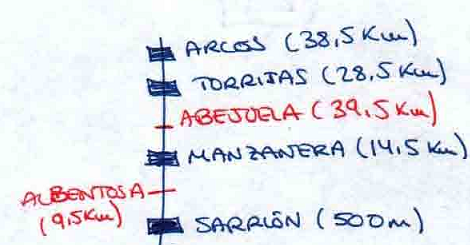 ARCOS (38,5 Km)
TORRIJAS (28,5 Km)
ABEJUELA (39,5 Km)
MANZANERA (14,5 Km)
ALBENTOSA
(9,5 Km)
SARRIÓN (500 m)